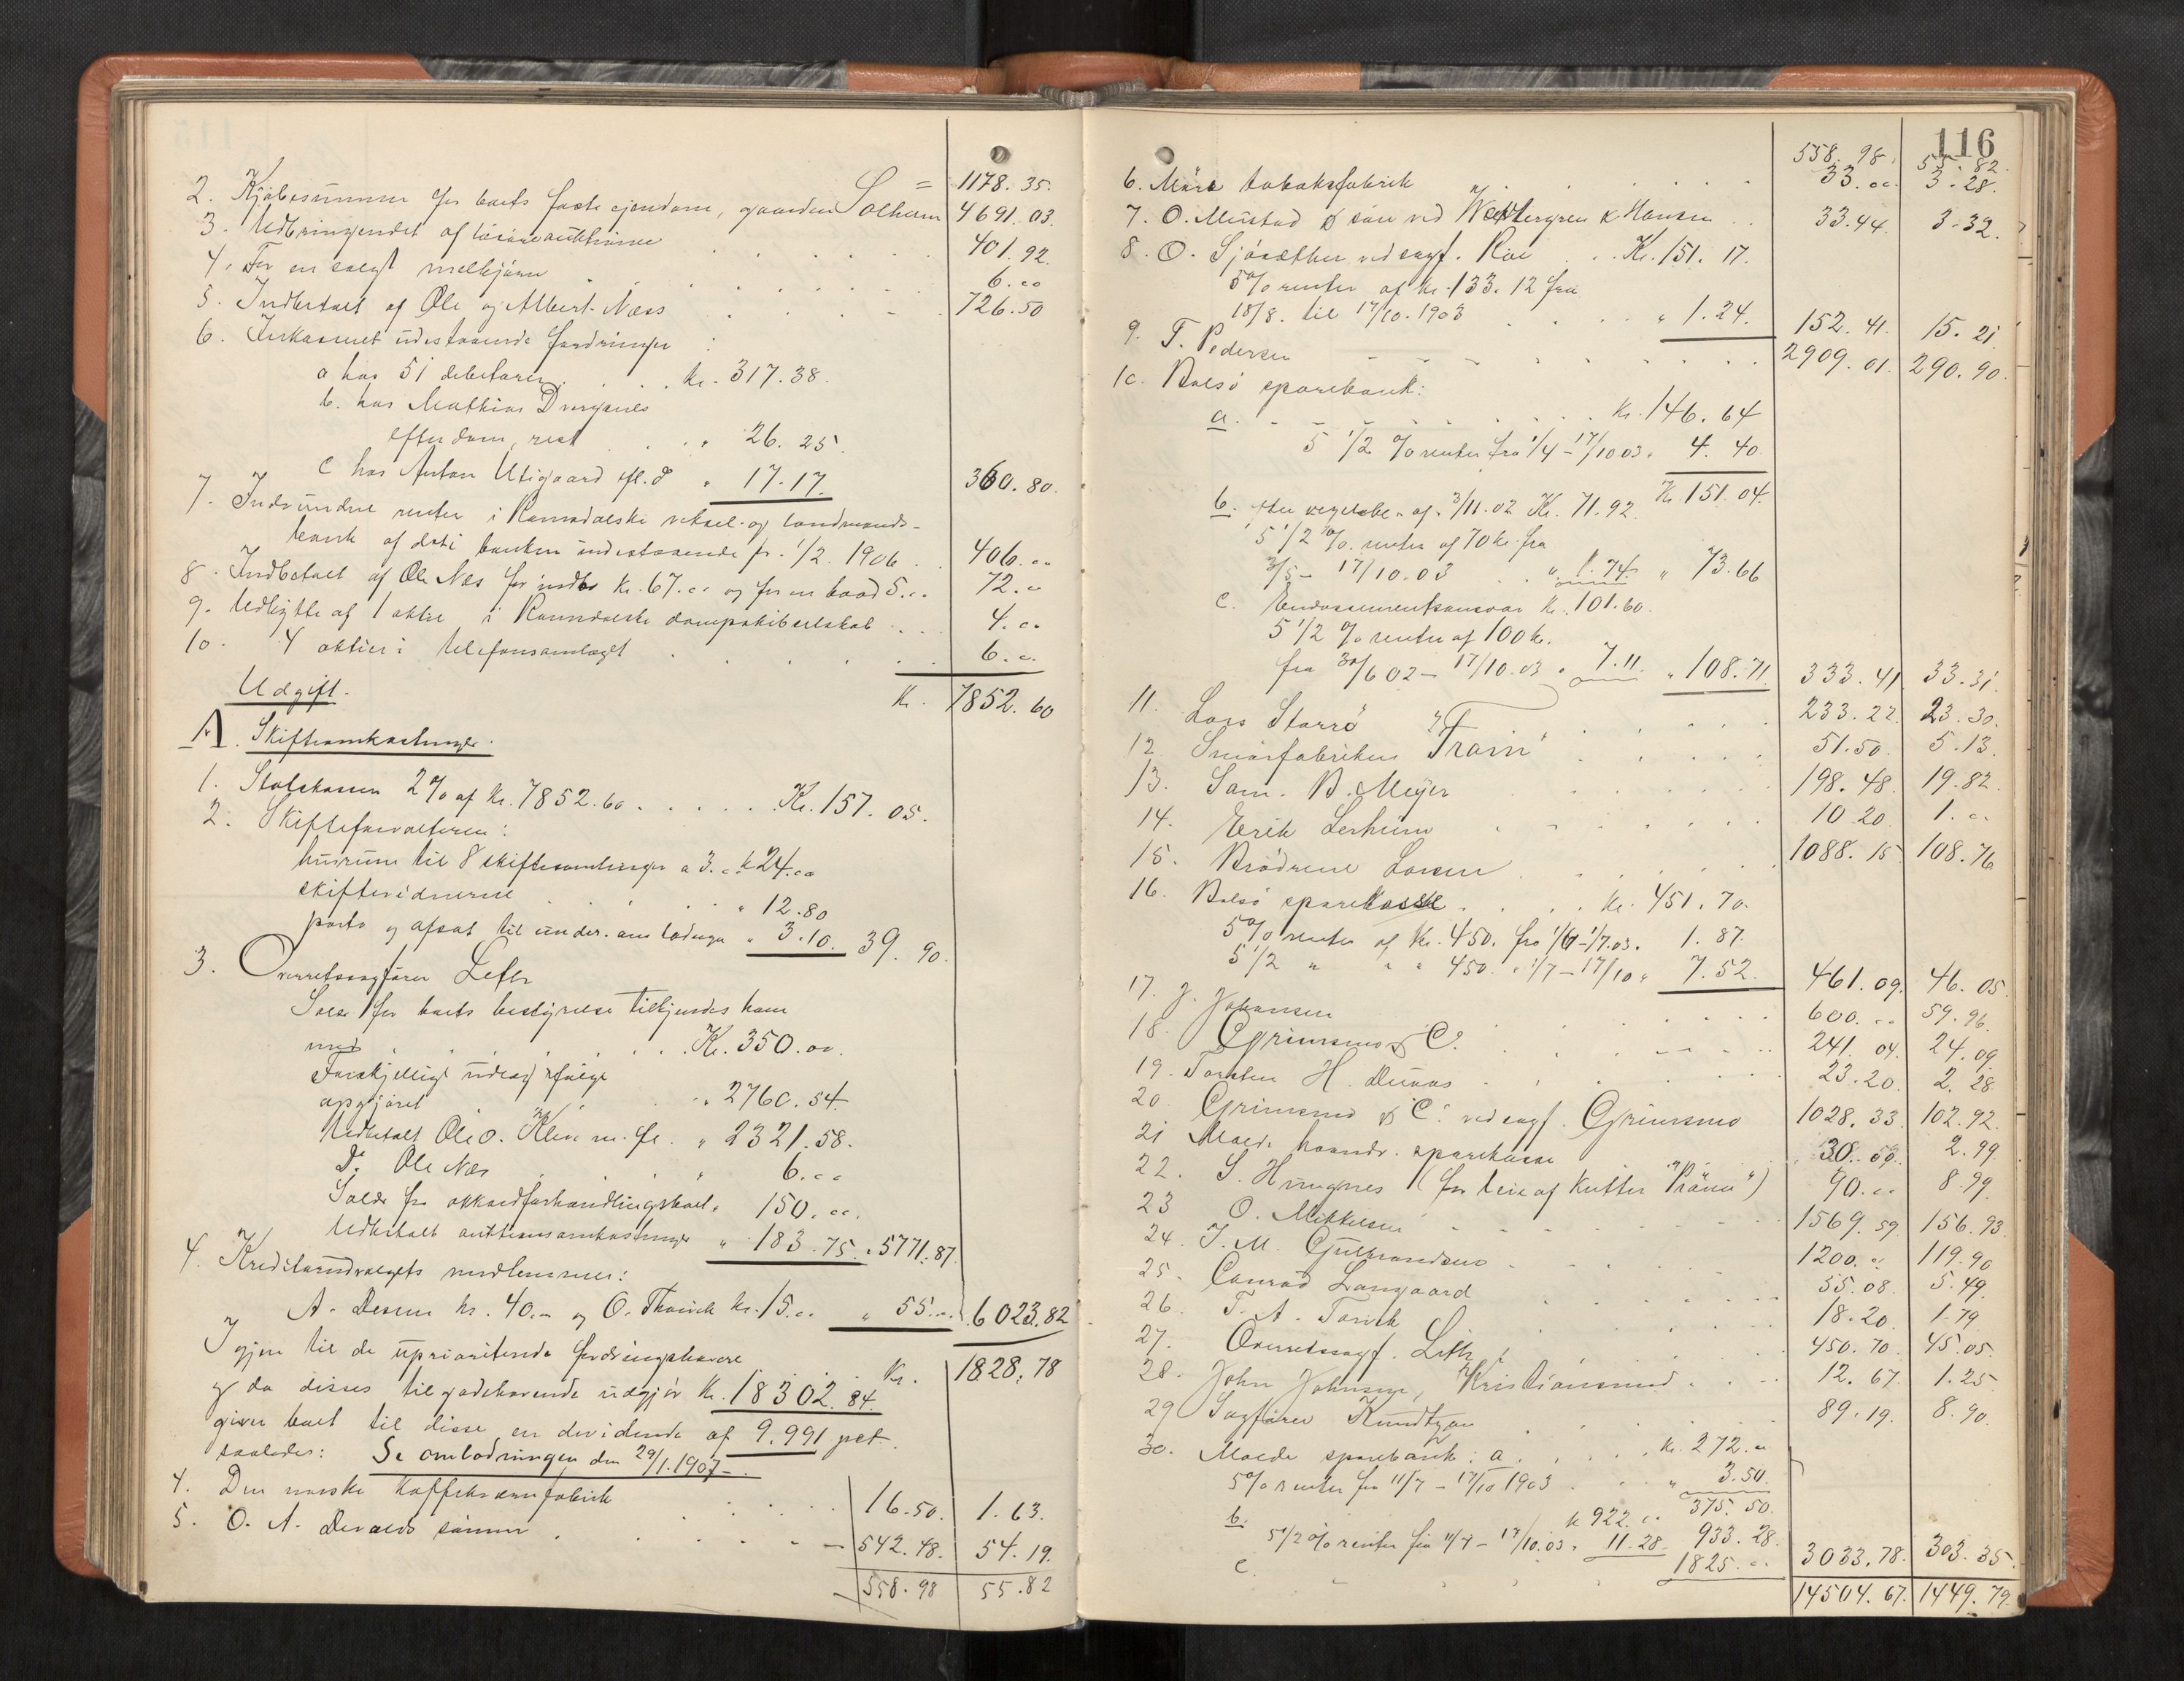 = 1178. 35.
2. Kjøbesummen for boets faste eiendom, gaarden Solheim 4691. 03.
3. Udbringendet af løsøreauktionen 401. 92.
4. For en solgt 6. 00
5. Indbetalt af Ole og Albert Næss 726. 50
6. Inkasseret udestaaende fordringer :
a hos 51 debitorer kr. 317. 38.
b. hos Mathias
efter dom, rest " 26. 25.
c hos Anton Utigaard " 17. 17. 360. 80.
7. Indvundne renter i Romsdalske veksel- og landmands-
bank af det i banken indestaaende pr. 1/2. 1906 406. 00
8. Indbetalt af Ole Næs for indbo kr. 67. 00 og for en baad 5. 00 72. 00
9. Udbytte af 1 aktie i Romsdalske dampskibselskab 4. 00
10. 4 aktier i telefonsamlaget 6. 00
Kr. 7852. 60
Udgift.
A. Skifteomkostninger.
1. Statskassen 2% af kr. 7852. 60 Kr. 157. 05.
2. Skifteforvalteren:
husrum til 8 skiftesamlinger a 3. 00 k 24. 00
skiftevidnerne " 12. 80
porto og afsat til under. om lodningen " 3. 10. 39. 90.
3. Overretssagfører Leth
Salær for boets bestyrelse tilkjendes ham
med Kr. 350. 00.
Forskjellige udlæg ifølge
opgjøret " 2760. 54.
Udbetalt Ole O. m. fl. " 2321. 58.
Do Ole Næs " 6. 00
Salær for akkordforhandlingsboet " 150. 00.
Udbetalt auktionsomkostninger " 183. 75. " 5771. 87
4. Kreditorudvalgets medlemmer:
A. kr. 40. - og O. kr. 15. 00 " 55. 00 6023. 82
Igjen til de uprioriterede fordringshavere Kr. 1828. 78
og da disses tilgodehavende udgjør Kr. 18302. 84.
giver boet til disse en dividende af 9. 991 pct.
saaledes: Se omlodningen den 29/1. 1907 -.
4. Den norske fabrik 16. 50. 1. 63.
5. O. A. Devolds sønner 542. 48. 54. 19.
558. 98 55. 82
116
558. 98. 55. 82.
6. Møre tobaksfabrik 33. 00 3. 28.
7. O. Mustad & søn ved Westergren & Hansen 33. 44. 3. 32.
8. O. ved sagf. Roe Kr. 151. 17.
5% renter af kr. 133. 12 fra
18/8. til 17/10. 1903 " 1. 24. 152. 41. 15. 21
9. T. Pedersen 2909. 01. 290. 90.
10. Bolsø sparebank:
a. kr. 146. 64
5 1/2 % renter fra 1/4 - 17/10 03 " 4. 40.
Kr. 151. 04.
b. af 3/11. 02 Kr. 71. 92
5 1/2 %. renter af 70 kr. fra
3/5 - 17/10. 03 " 1. 74. " 73. 66
c. Endossementsansvar Kr. 101. 60.
5 1/2 % renter af 100 kr.
fra 30/6 02 - 17/10. 03 " 7. 11. " 108. 71. 333. 41. 33. 31.
11. Lars 233. 22. 23. 30.
12. Smørfabriken "Train" 51. 50. 5. 13.
13. Sam. B. Meyer 198. 48. 19. 82.
14. Erik Lerheim 10 20. 1. 00
15. Brødrene Larsen 1088. 15. 108. 76
16. Bolsø sparekasse kr. 451. 70.
5% renter af kr. 450. fra 1/6 - 1/7. 03. 1. 87.
5 1/2 " " " 450. " 1/7 - 17/10 " 7. 52. 461. 09. 46. 05.
17. J. Johansen 600. 00 59. 96.
18. Grimsmo & Co. 241. 04. 24. 09.
19. Torsten H. 23. 20. 2. 28
20. Grimsmo & Co. ved sagf. Grimsmo 1028. 33. 102. 92.
21 Molde haandv. sparekasse 30. 2. 99.
22. S. (for leie af kutter) 90. 00 8. 99
23 O. Mikkelsen 1569. 59. 156. 93.
24. J. M. Gulbrandsen 1200. 00 119. 90
25. Conrad Langaard 55. 08. 5. 49.
26. T. A. 18. 20. 1. 79
27. Overretssagf. Leth 450. 70. 45. 05.
28. John Johnsen, Kristiansund 12. 67. 1. 25
29 Sagfører Knudtzon 89. 19. 8. 90.
30. Molde sparebank: a. kr. 272. 00
5% renter fra 11/7 - 17/10 1903 " 3. 50.
375. 50.
b. k 922. 00
5 1/2 % renter fra - 17/10. 03 " 11. 28. 933. 28.
c. 1825. 00 3033. 78. 303. 35.
14504. 67. 1449. 79.